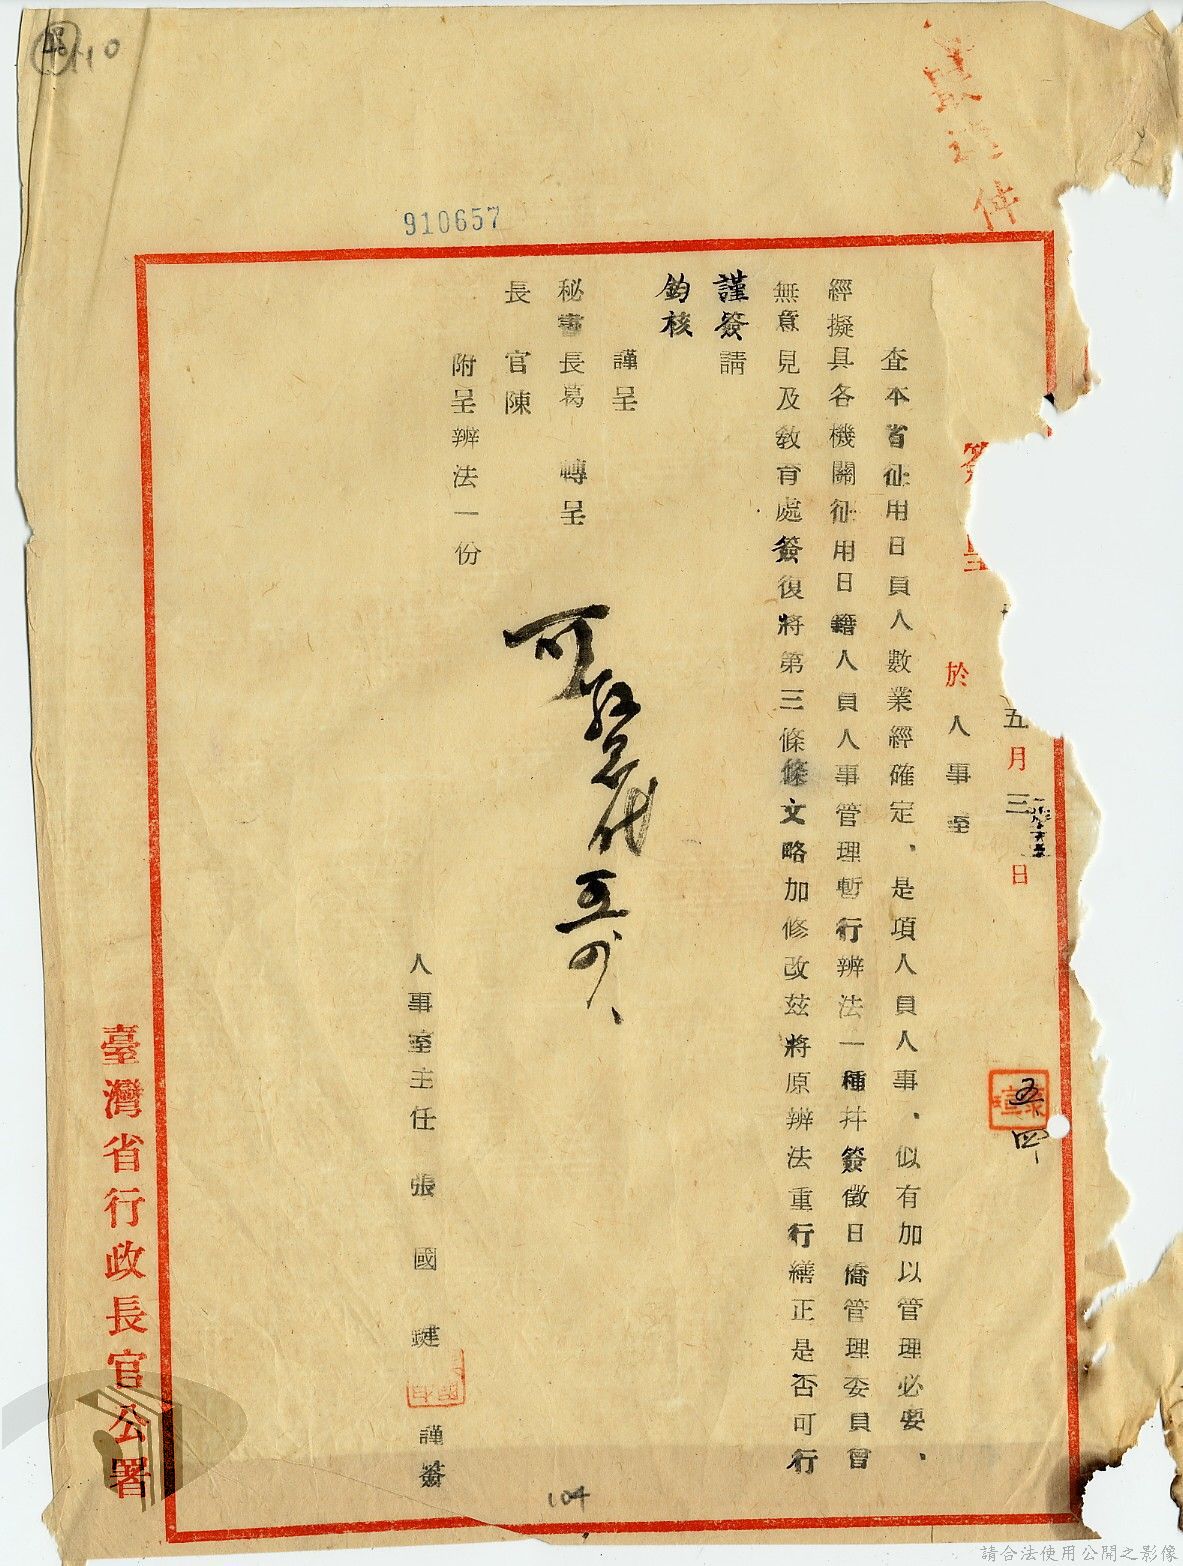 最速件
910657
簽呈
五月三日
於人事室
五四
查本省征用日員人數業經確定、是項人員人事、似有加以管理必要、
經擬具各機關征用日籍人員人事管理暫行辦法一種幷簽徵日僑管理委員會
無意見及教育處簽復將第三條條文略加修改茲將原辨法重行繕正是否可行
謹簽請
鈞核
謹呈
秘書長葛 轉呈
長官陳
附呈辨法一份
人事室主任 張國 謹簽
可
臺灣省行政長官公署
104
110
請合法使用公開之影像